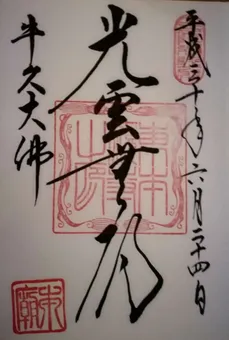 平成三十年六月二十四日
光雲無礙
牛久大佛